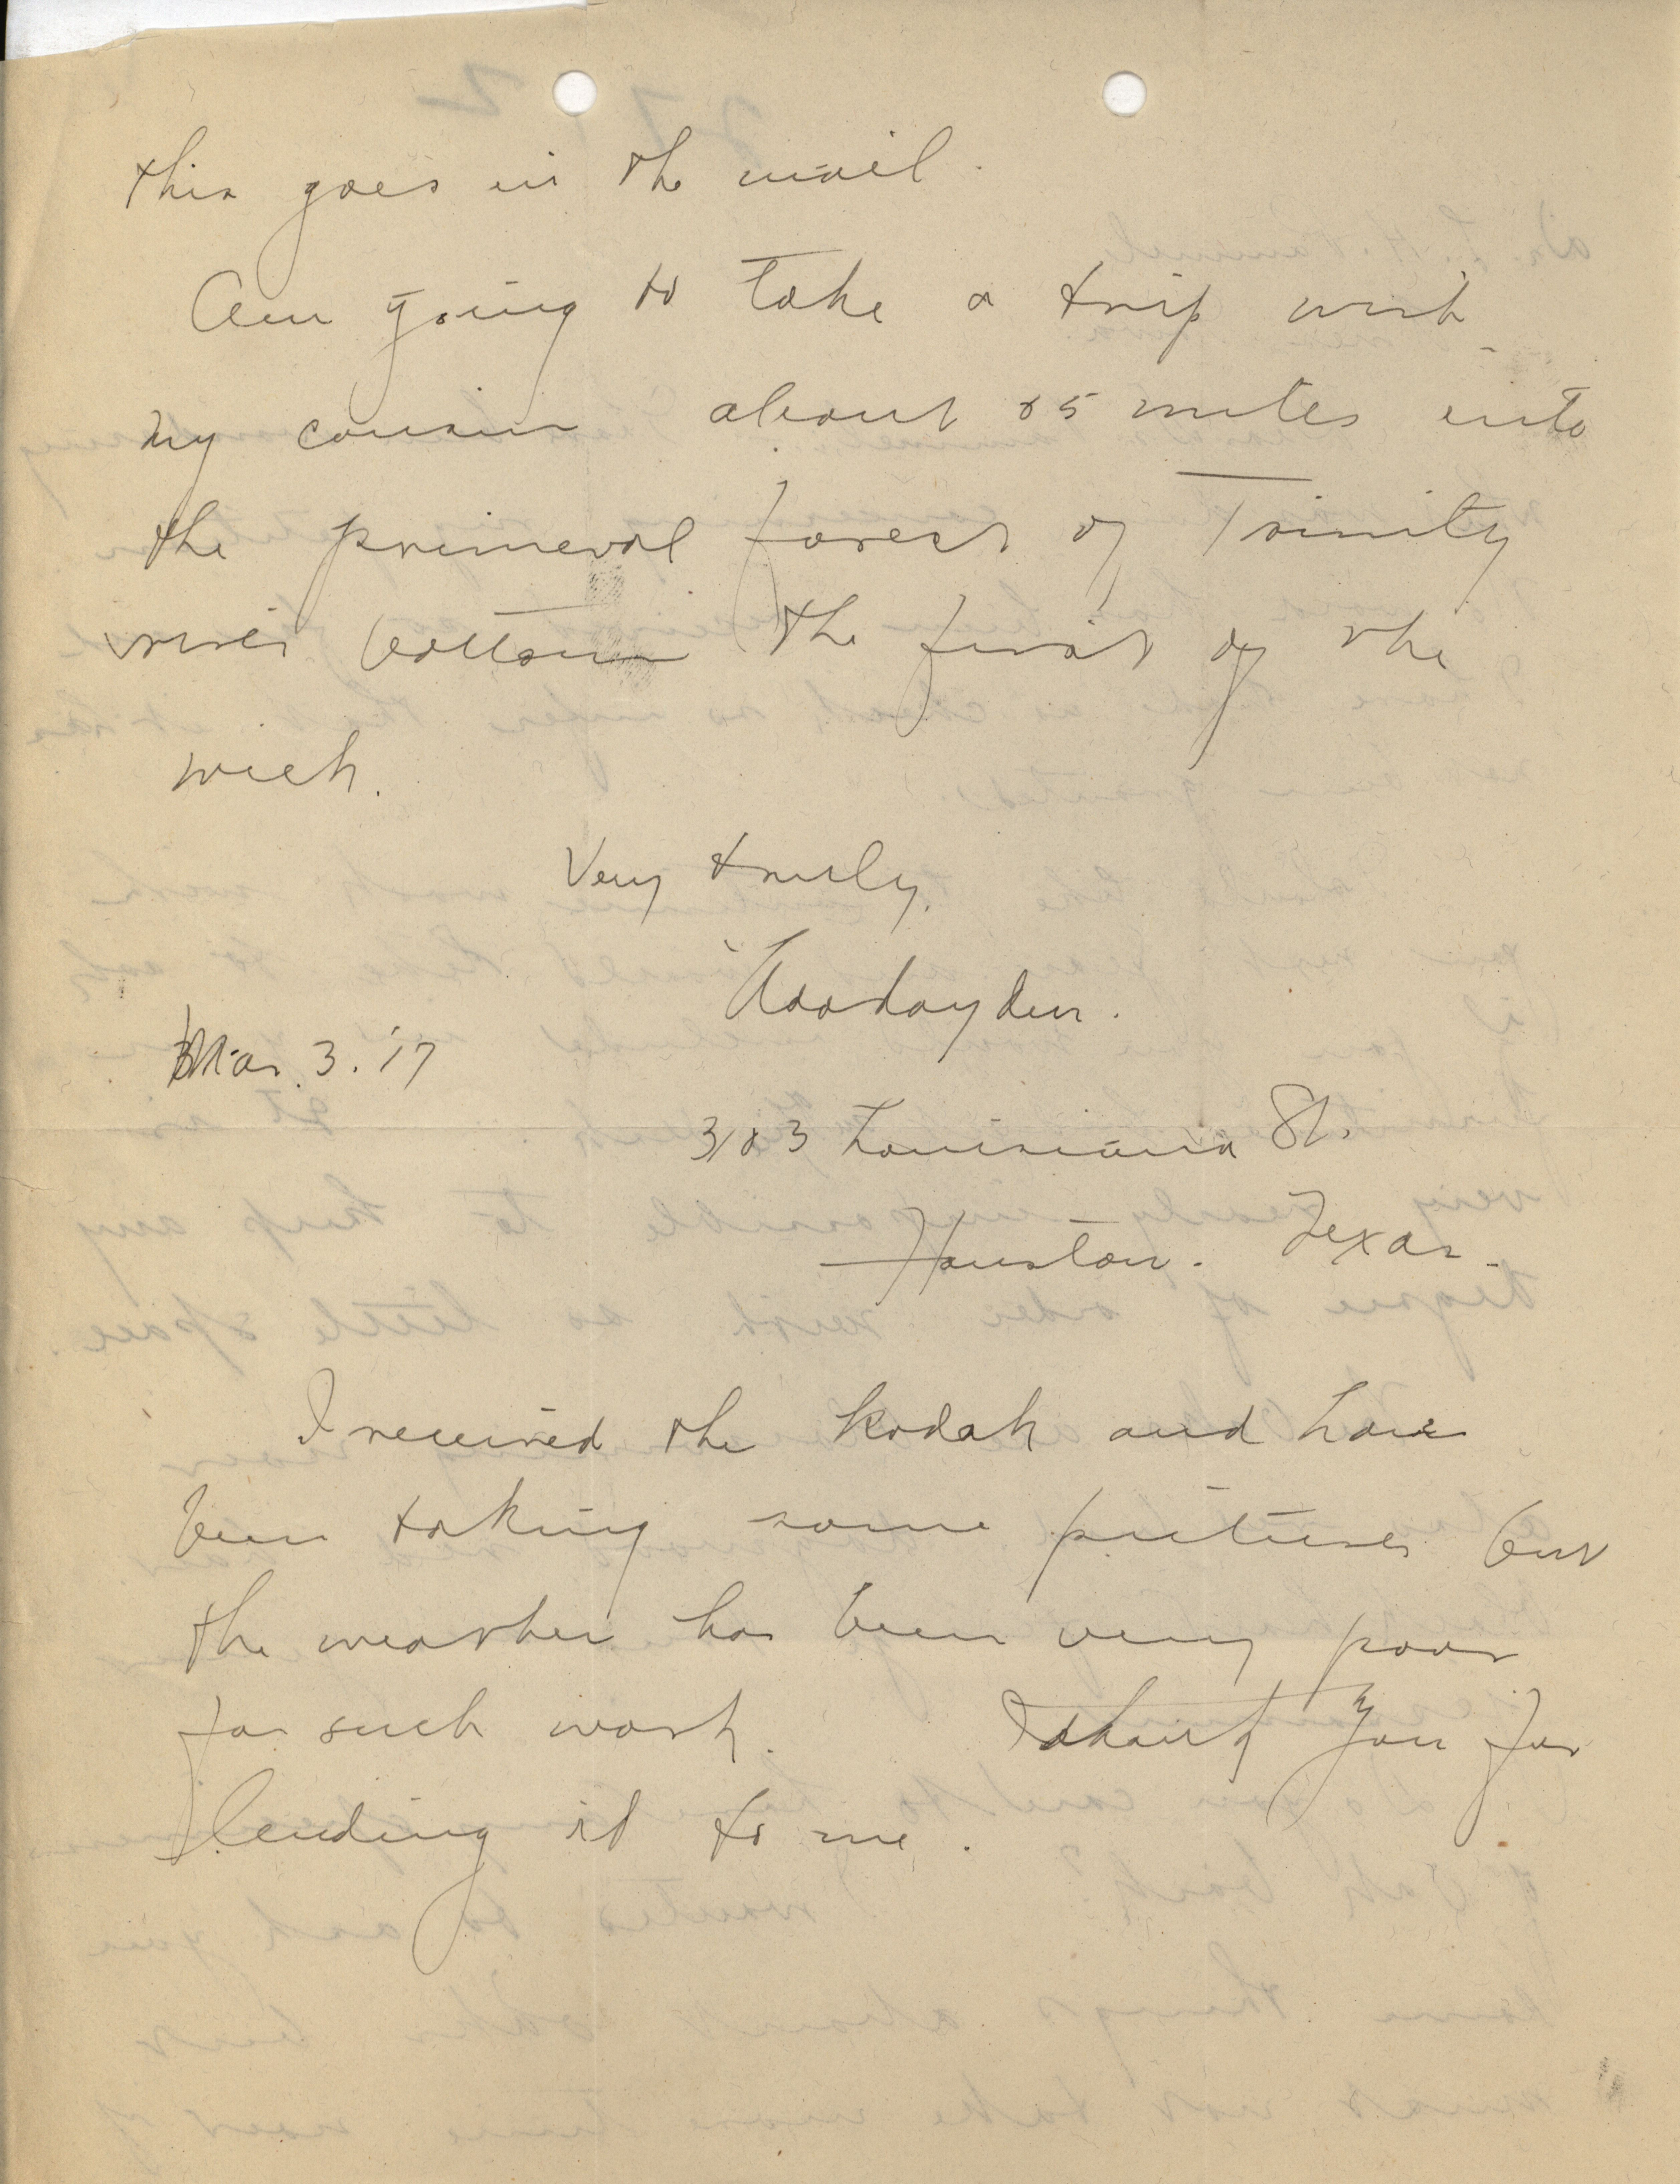 this goes in the mail.
Am going to take a trip with
my cousin about 85 miles into
the primeval forest of Trinity
river bottom the first of the
week.
Very truly,
Ada Hayden.
Mar. 3. '17
Louisiana St.
Houston. Texas.
I received the kodak and have
been taking some pictures but
the weather has been very poor
for such work. I thank you for
lending it to me.